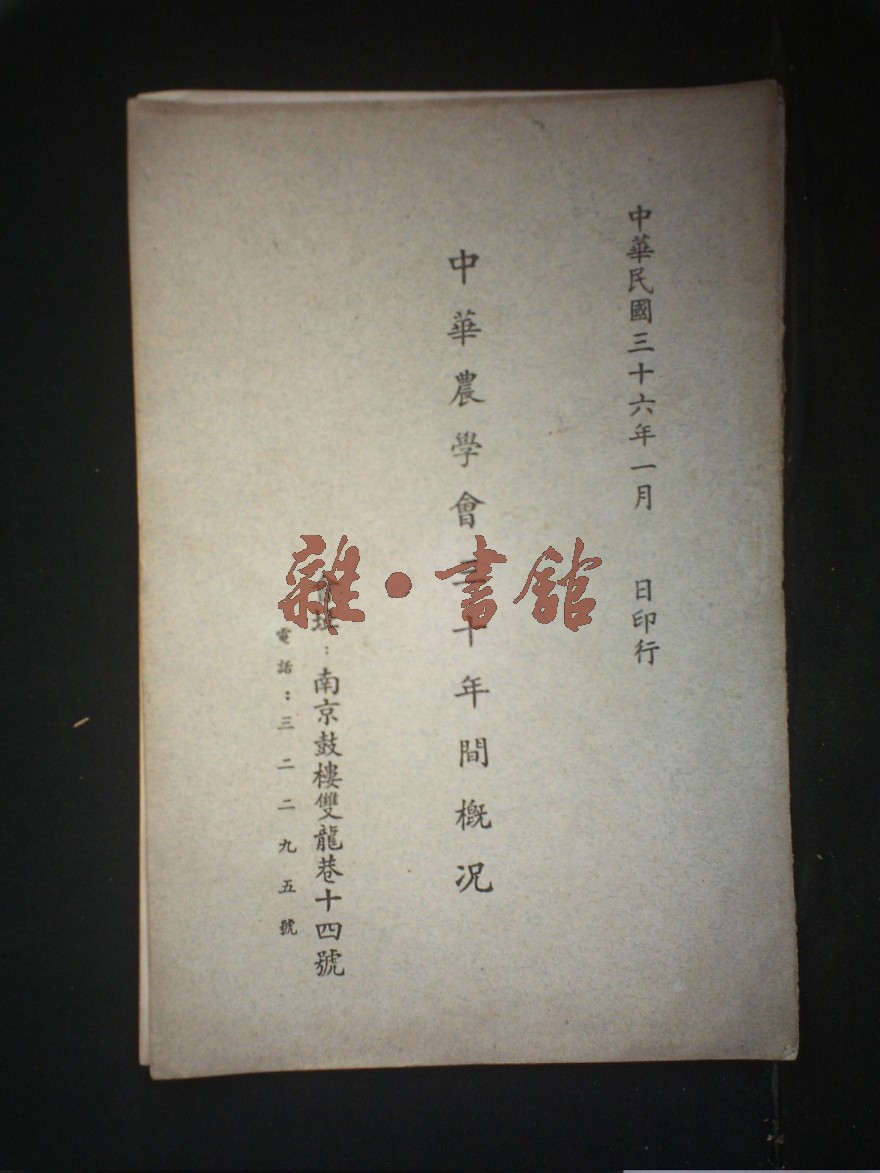 中華民國三十六年一月 日印行
中華農學會三十年間概况
會址：南京鼓樓雙龍巷十四號
電話：三二二九五號
雜·書館